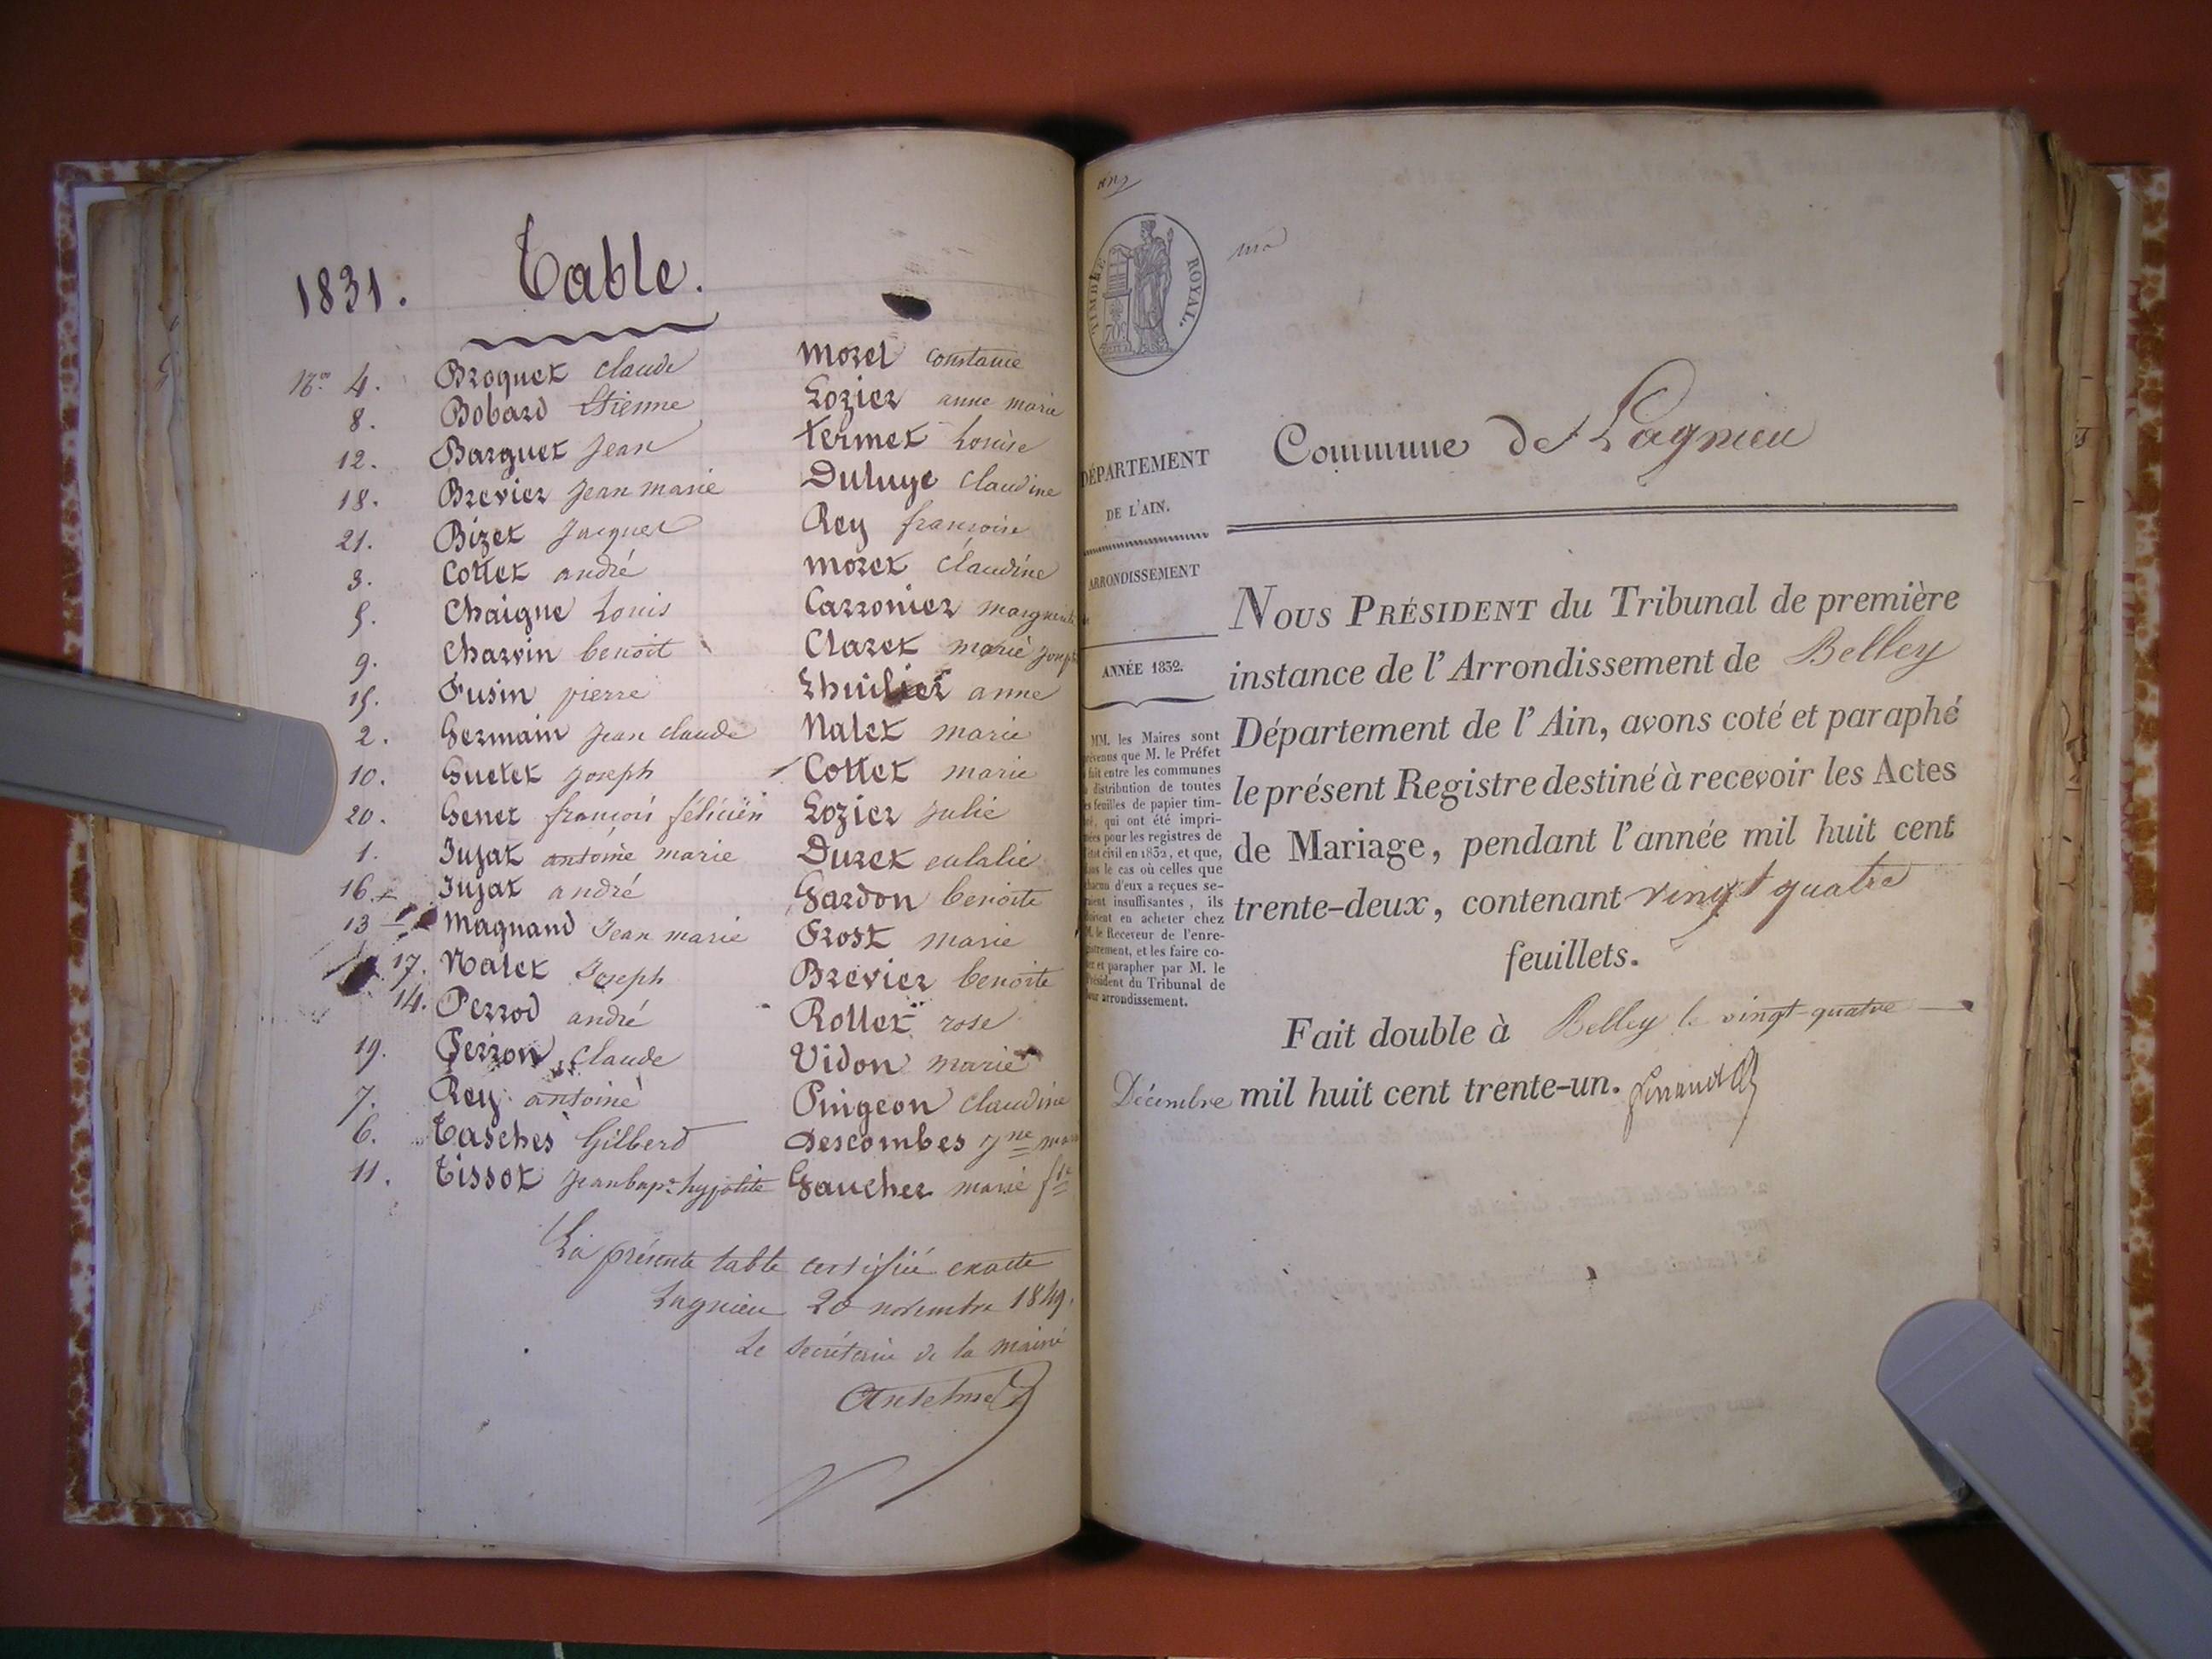 1831. Table.
Nos 4. Broquet Claude Morel Constance
8. Bobard Etienne Lozier anne marie
12. Barguet Jean Termet Louise
18. Brevier Jean marie Duluye Claudine
21. Bizet Jacques Rey françoise
3. Cottet andré Moret Claudine
5. Chaigne Louis Carronier marguerite
9. Charvin benoit Claret marie Joseph
15. Fusin pierre Lhuilier anne
2. Germain Jean claude Nalet marie
10. Guetet Joseph Cottet marie
20. Genet françois félicien Lozier Julie
1. Jujat antoine marie Duret eulalie
16. Jujat andré Gardon benoite
13 Magnand Jean marie Frost marie
17. Nalet Joseph Brevier benoite
14. Perrod andré Rollet rose
19. Perron Claude Vidon marie
7. Rey antoine Pingeon claudine
6. Tasches Gilberd Descombes
11. Tissot Jean bapte hypolite Gaucher marie fse
La présente table certifiée exacte
Lagnieu 20 novembre 1849.
Le secrétaire de la mairie
Anselme
TIMBRE ROYAL.
Commune de Lagnieu
DÉPARTEMENT
DE L'AIN.
ARRONDISSEMENT
ANNÉE 1832.
MM. les Maires sont
prévenus que M. le Préfet
a fait entre les communes
la distribution de toutes
les feuilles de papier tim-
bré, qui ont été impri-
mées pour les registres de
l'état civil en 1832, et que,
dans le cas où celles que
chacun d'eux a reçues se-
raient insuffisantes, ils
doivent en acheter chez
M. le Receveur de l'enre-
gistrement, et les faire co-
ter et parapher par M. le
Président du Tribunal de
leur arrondissement.
NOUS PRÉSIDENT du Tribunal de première
instance de l'Arrondissement de Belley
Département de l'Ain, avons coté et paraphé
le présent Registre destiné à recevoir les Actes
de Mariage, pendant l'année mil huit cent
trente-deux, contenant vingt quatre
feuillets.
Fait double à Belley le vingt-quatre
Décembre mil huit cent trente-un.